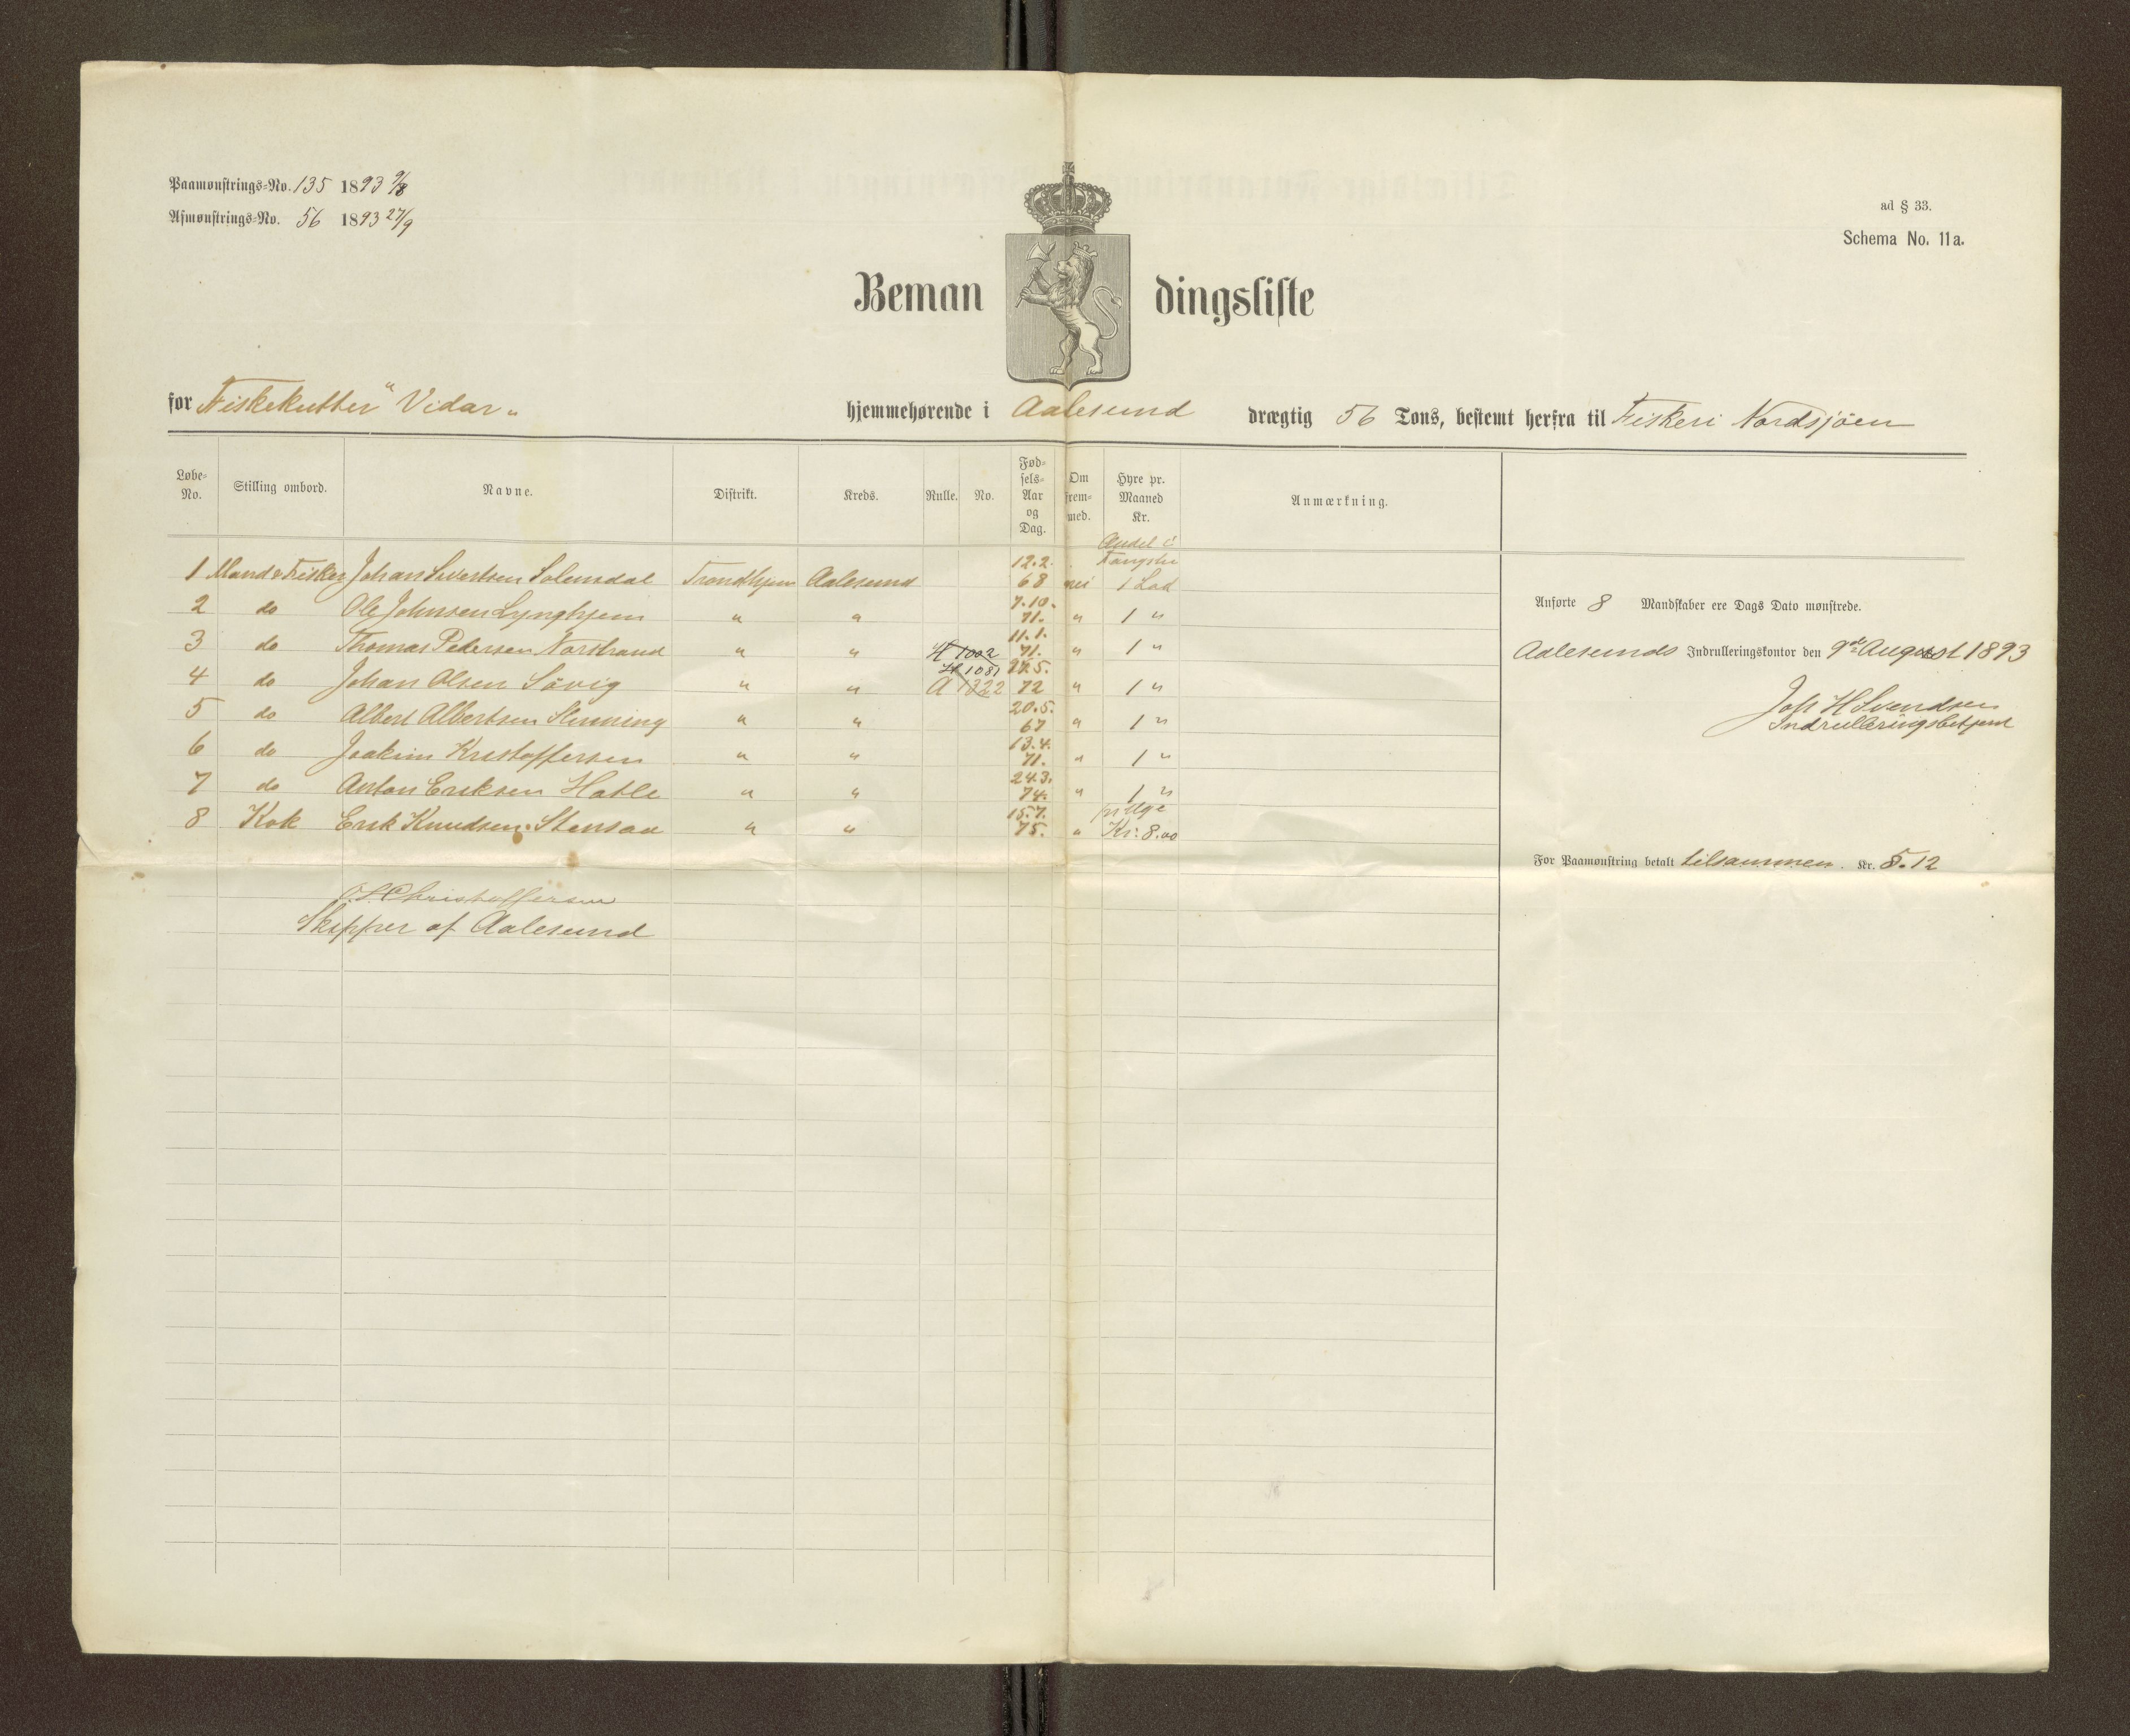 Paamonstrings-No. 135 1893 9/8
Afmonstrings-No. 56 1893 27/9
ad § 33.
Schema No. 11a.
Bemandingsliste
for Fiskekutter "Vidar" hjemmehørende i Aalesund drægtig 56 Tons, bestemt herfra til Fiskeri Nordsjöen
Løbe-No. Stilling ombord. Navne. Distrikt. Kreds. Rulle. No. Fødsels-Aar og Dag. Om frem-med. Hyre pr. Maaned Kr. Anmærkning.
Andel i Fangsten
1 Mand & Fisker Johan Sivertsen Solemdal Trondhjem Aalesund 12.2. 68 nei 1 Lod
2 do Ole Johnsen Lynghjem " " 7.10. 71. " 1 "
3 do Thomas Pedersen Norstrand " " H 1002 11.1. 71. " 1 "
4 do Johan Olsen Sövig " " H 1081 A 1322 27.5. 72 " 1 "
5 do Albert Albertsen Slinning " " 20.5. 67 " 1 "
6 do Joakim Kristoffersen " " 13.4. 71. " 1 "
7 do Anton Eriksen Hatle " " 24.3. 74. " 1 "
8 Kok Erik Knudsen Stensaa " " 15.7. 75. " pr Uge Kr. 8.00
O. L. Christoffersen
Skipper af Aalesund
Anførte 8 Mandskaber ere Dags Dato mønstrede.
Aalesunds Indrulleringskontor den 9de August 1893
Joh H Svendsen
Indrulleringsbetjent
For Paamonstring betalt tilsammen. Kr. 5.12